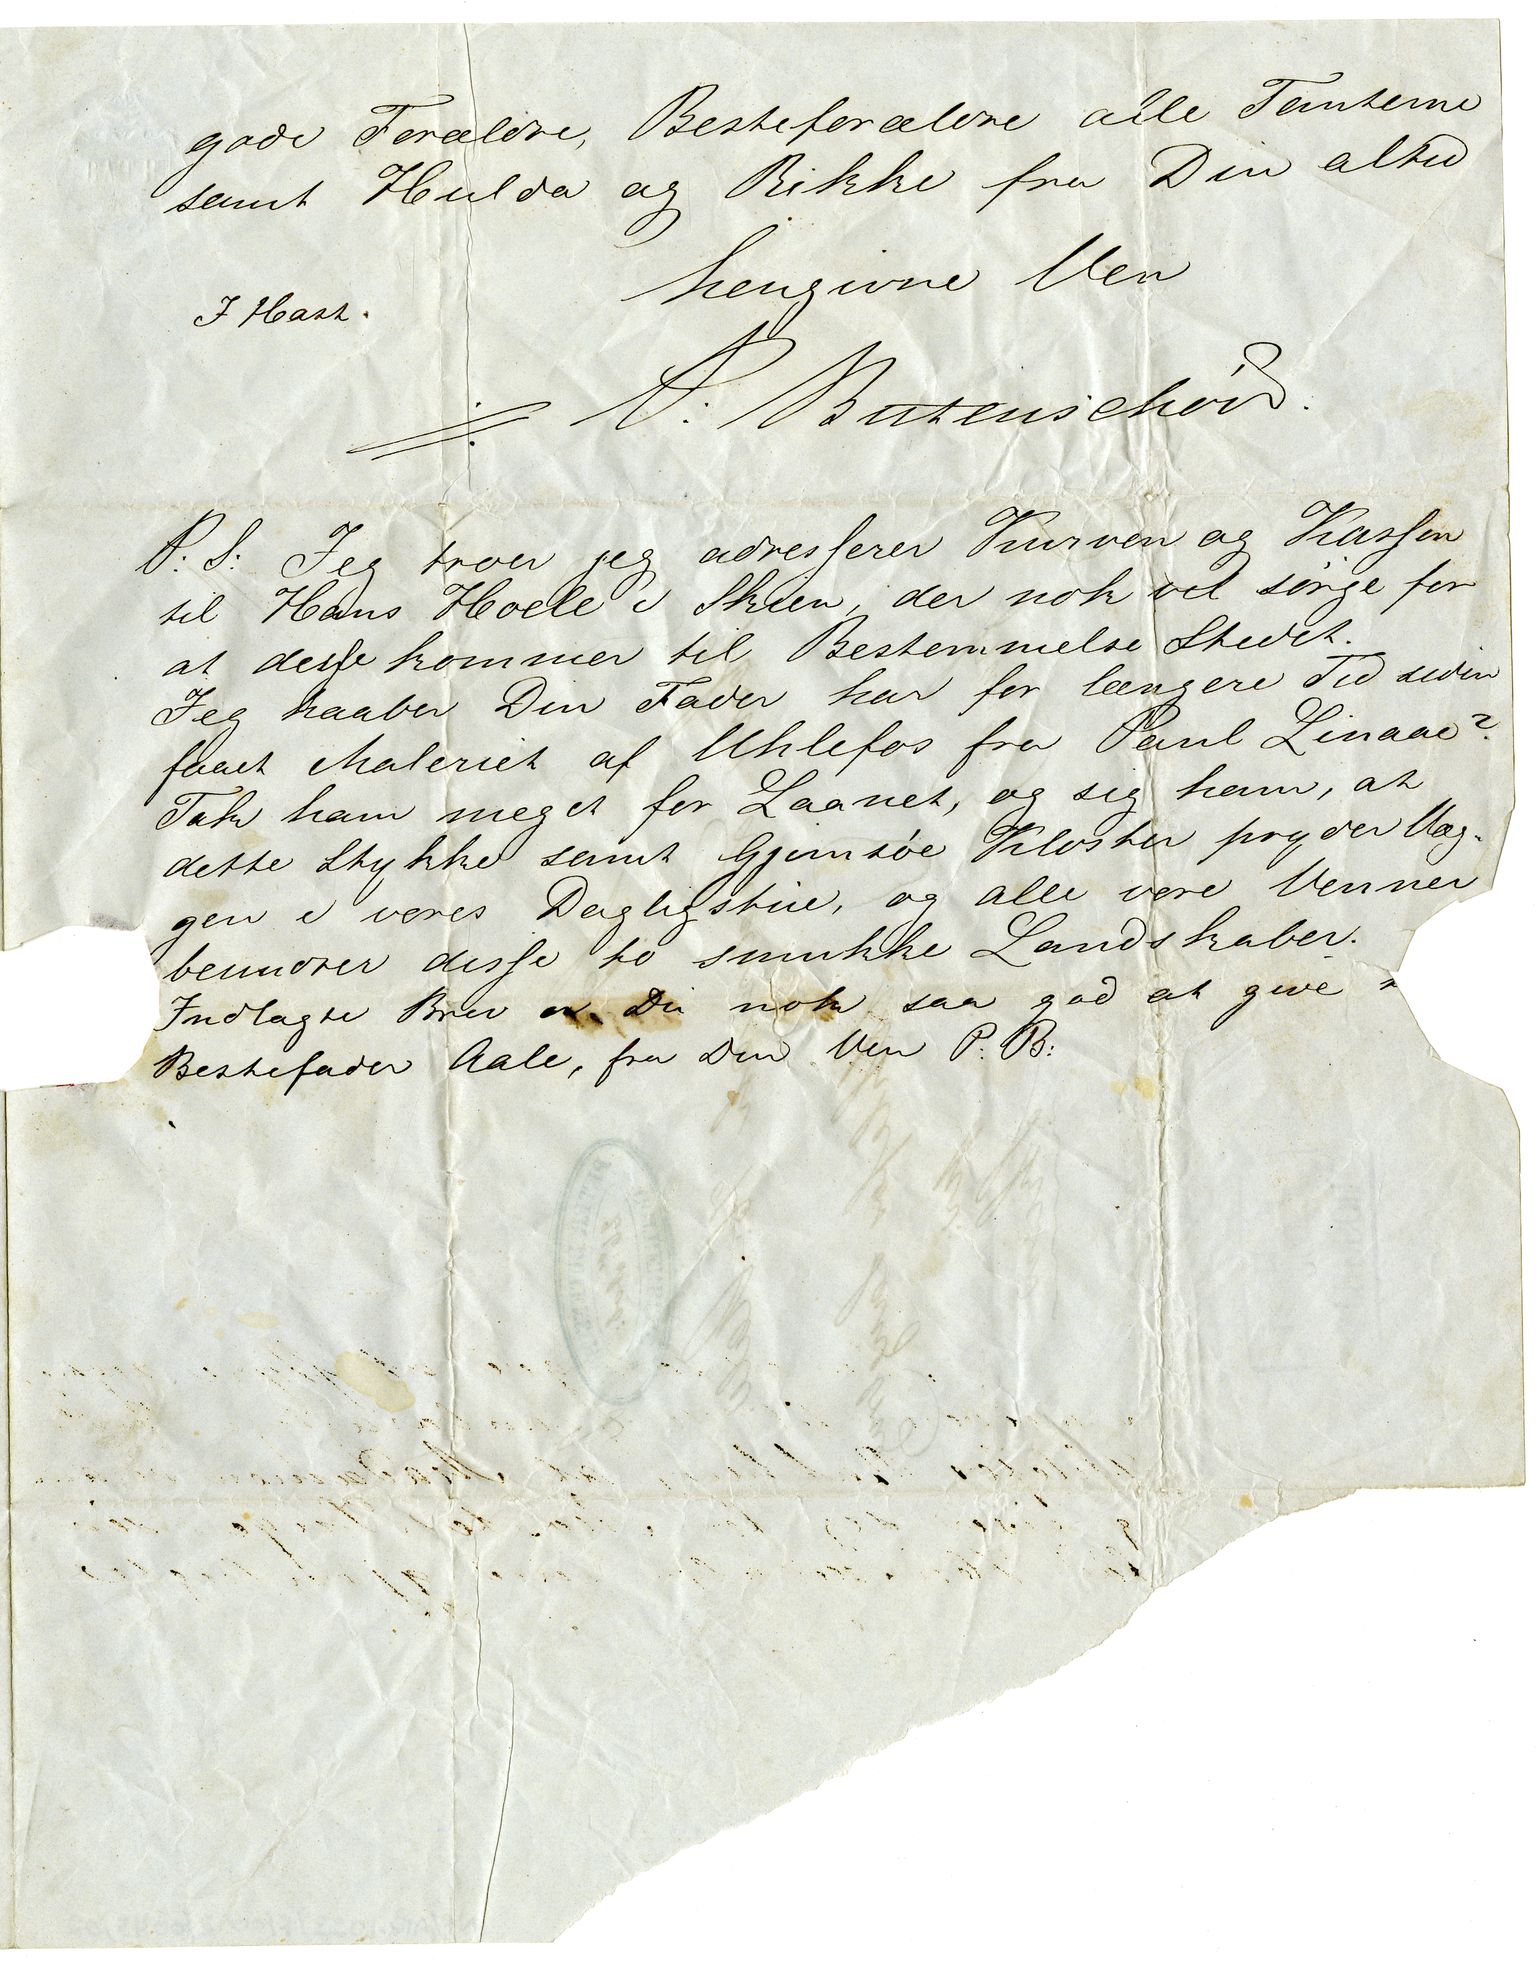 gode Forældre, Besteforældre alle Tanterne
samt Hulda og Rikke fra Din altid
hengivne Ven
I Hast.
P: Butenschøn.
P: S: Jeg troer jeg adresserer Kurven og Kassen
til Hans Hoell i Skien, der nok vil sørge for
at disse kommer til Bestemmelse Stedet.
Jeg haaber Din Fader har for længere Tid siden
faaet Maleriet af Uhlefos fra Paul Linaae?
Tak ham meget for Laanet, og sig ham, at
dette Stykke samt Gjemsøe Kloster pryder Væg-
gen i vores Dagligstue, og alle vore Venner
beundrer disse to smukke Landskaber.
Indlagte Brev er Du nok saa god at give
Bestefader Aale, fra Din Ven P: B: